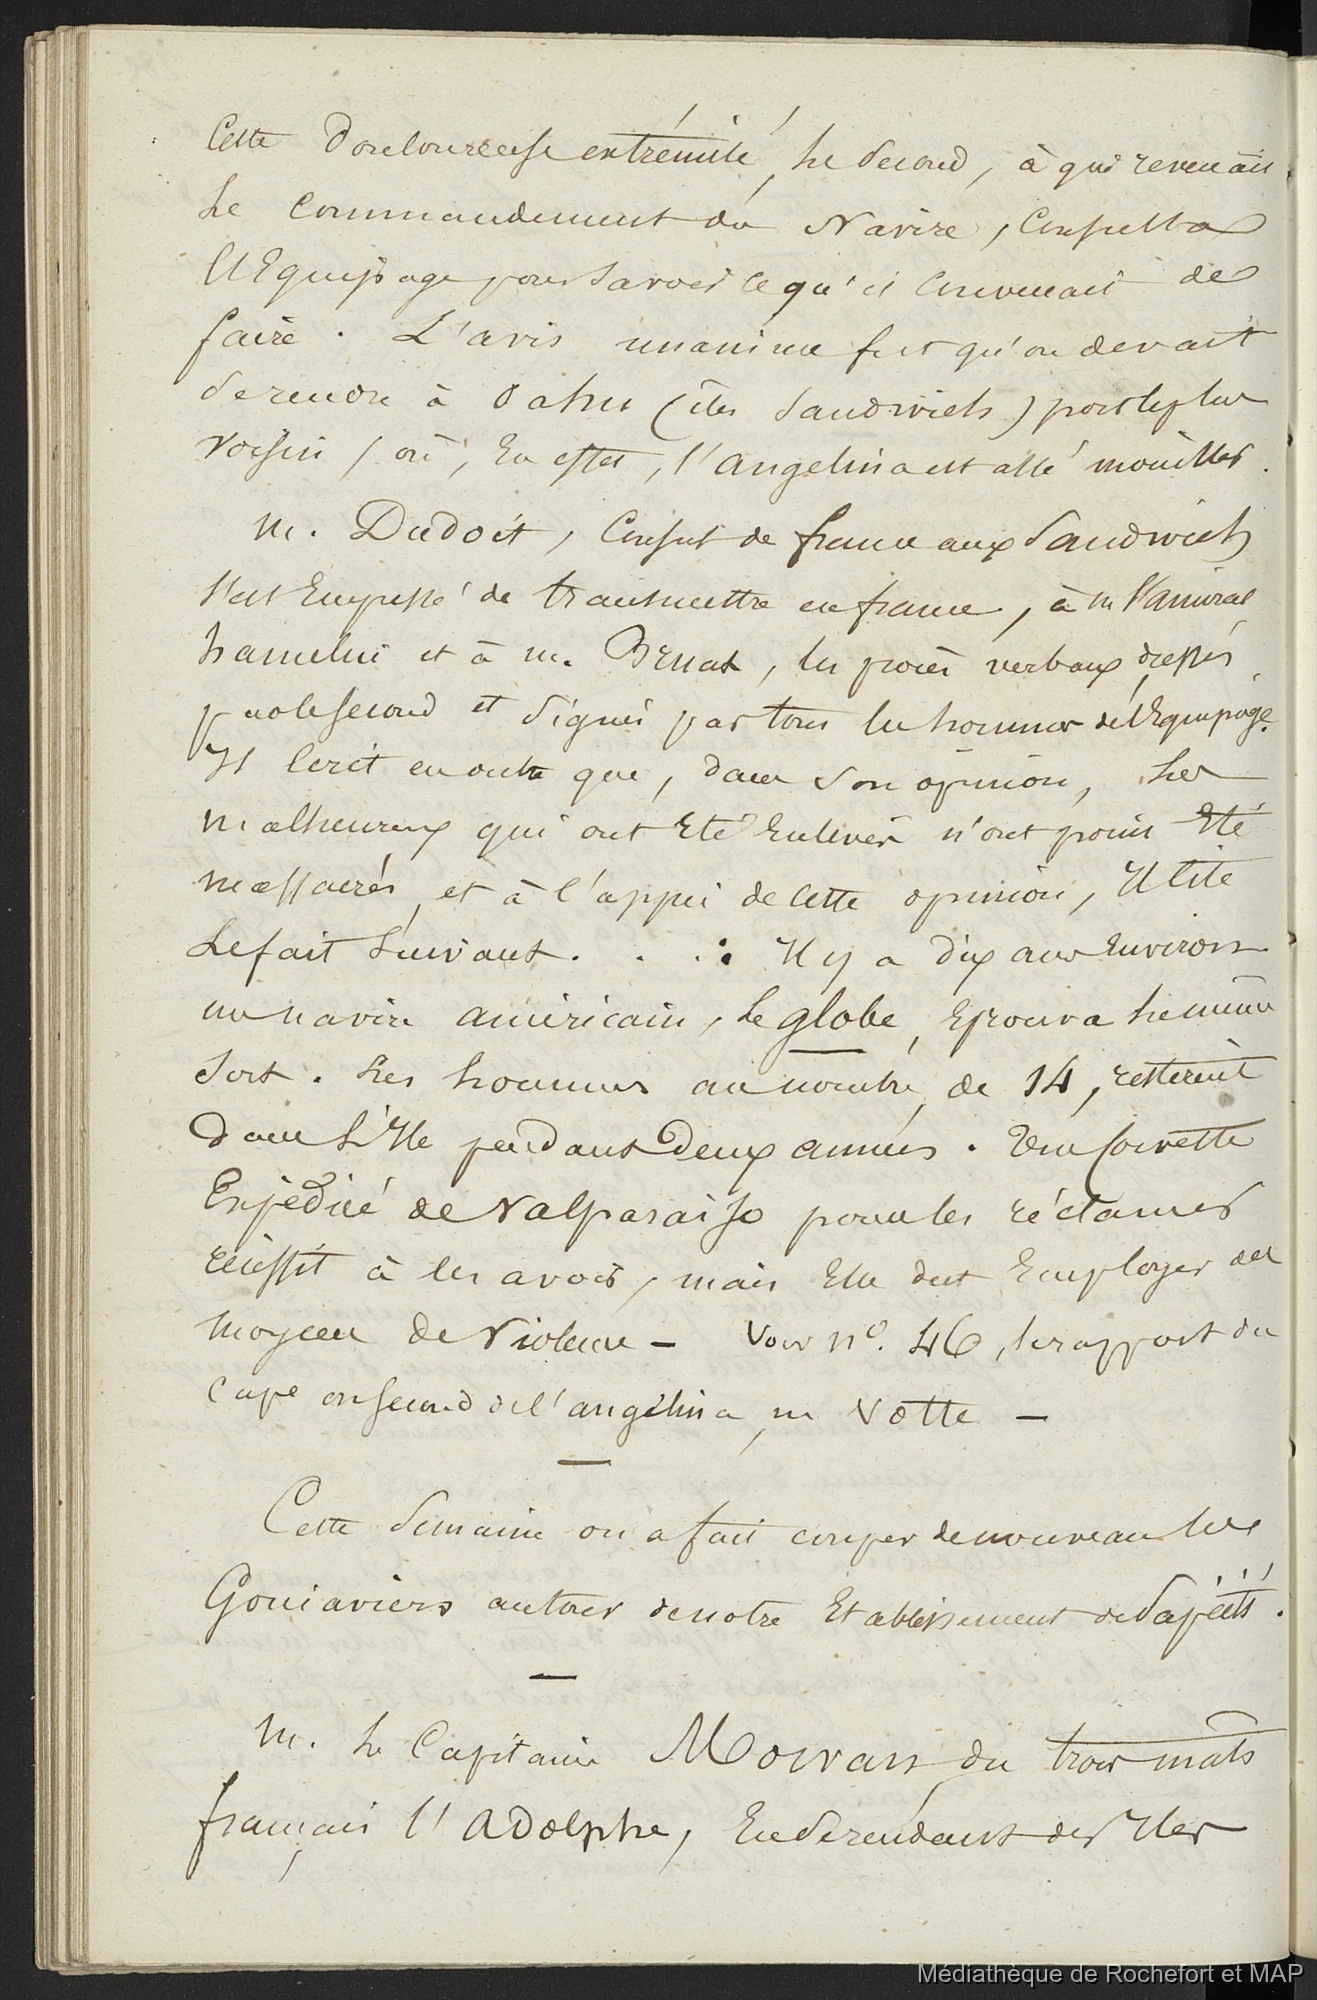 Cette douloureuse extrémité, le second, à qui revenait
le commandement du Navire, consulta
l'Equipage pour savoir ce qu'il convenait de
faire. L'avis unanime fut qu'on devait
se rendre à Oahu (îles Sandwich) port le plus
voisin, où, en effet, l'angelina est allé mouiller.
M. Dudoit, Consul de france aux Sandwich
s'est Empressé de transmettre en france, à M l'amiral
hamelin et à M. Bruat, les procès verbaux dressés
par le second et signés par tous les hommes de l'Equipage.
Il Ecrit en outre que, dans son opinion, les
malheureux qui ont Eté Enlevés n'ont point Eté
massacrés, et à l'appui de cette opinion, Il cite
Le fait suivant. . . : Il y a dix ans Environ
un navire américain, Le globe, Eprouva le même
sort. Les hommes au nombre de 14, restèrent
dans l'Ile pendant Deux années. Une Corvette
Expédiée de Valparaiso pour les réclamer
réussit à les avoir, mais Elle dut Employer des
moyens de Violence — Voir n°. 46, le rapport du
cape en second de l'angélina, M Votte —
Cette semaine on a fait couper de nouveau les
Gouiaviers autour de notre Etablissement de Papéiti.
M. le Capitaine Morvan du trois mâts
français l'Adolphe, En se rendant des Iles
Médiathèque de Rochefort et MAP